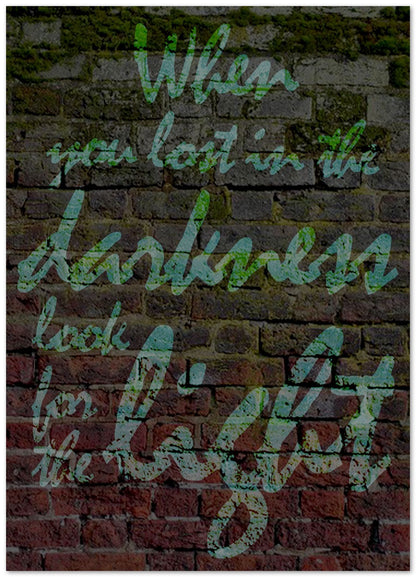 When
you lost in the
darkness
look
for the
light